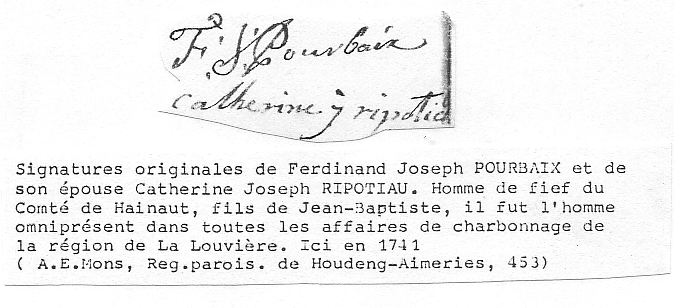 F. J. Pourbaix
Catherine j ripotia
Signatures originales de Ferdinand Joseph POURBAIX et de
son épouse Catherine Joseph RIPOTIAU. Homme de fief du
Comté de Hainaut, fils de Jean-Baptiste, il fut l'homme
omniprésent dans toutes les affaires de charbonnage de
la région de La Louvière. Ici en 1741
( A.E.Mons, Reg.parois. de Houdeng-Aimeries, 453)